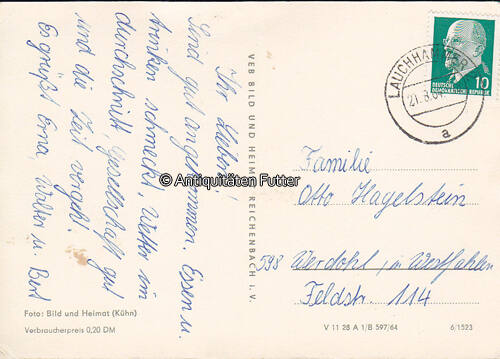 Ihr Lieben!
Sind gut angekommen. Essen u.
trinken schmeckt, Wetter im
durchschnitt, Gesellschaft gut
und die Zeit vergeht.
Es grüßt Erna, Walter u. Bert
Foto: Bild und Heimat (Kühn)
Verbraucherpreis 0,20 DM
VEB BILD UND HEIMAT REICHENBACH i. V.
© Antiquitäten Futter
LAUCHHAMMER
21.8.
a
10
DEUTSCHE
DEMOKRATISCHE REPUBLIK
Familie
Otto Hagelstein
598 Werdohl, in Westfahlen
Feldstr. 114
V 11 28 A 1/B 597/64
6/1523